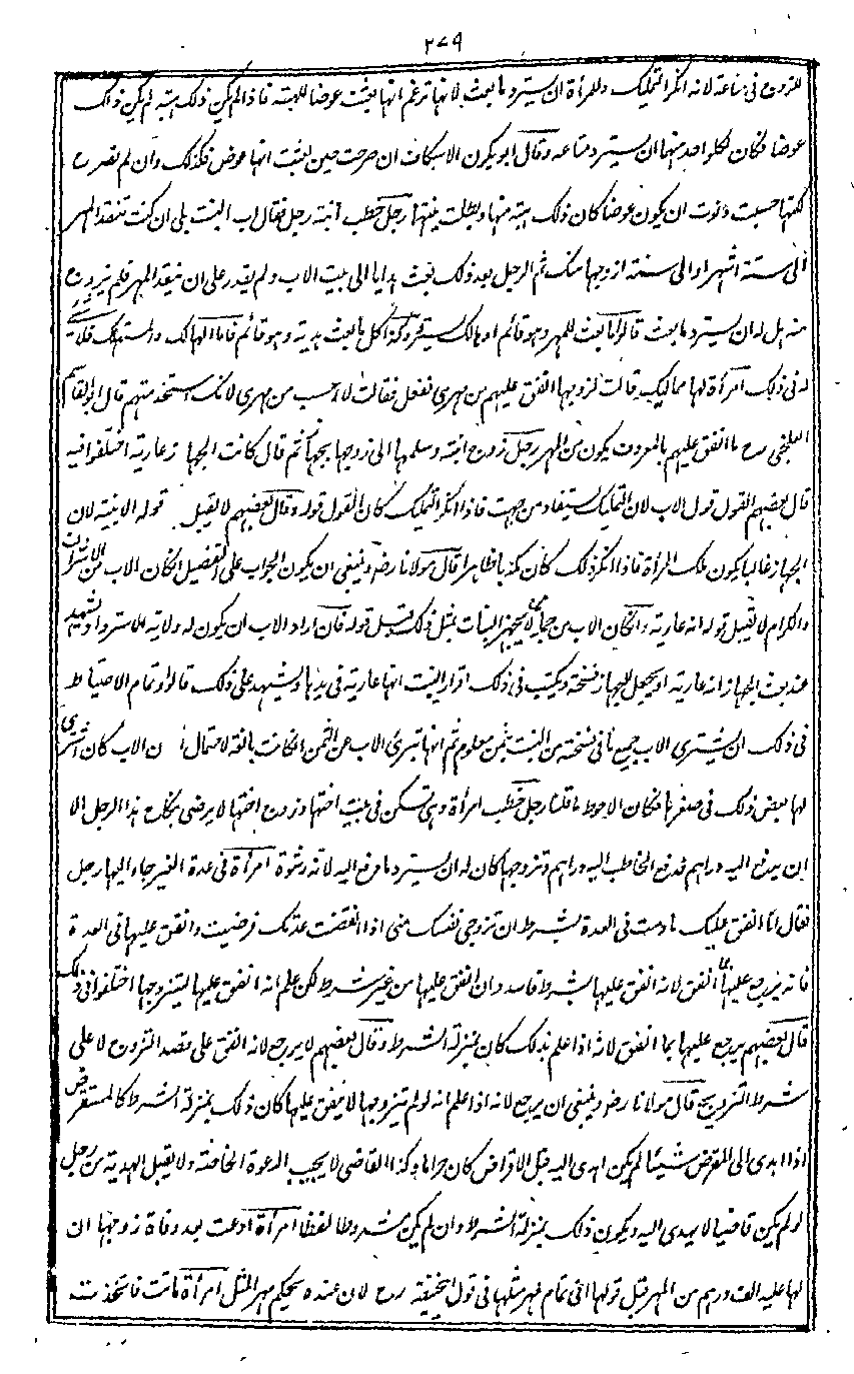 ٢٧٩
للزوج في متاعه لانه انكر التمليك وللمرأة ان تسترد ما بعثت لانها تزعم انها بعثت عوضا للهبة فاذا لم يكن ذلك هبة لم يكن ذلك
عوضا فكان لكل واحد منهما ان يسترد متاعه وقال ابو بكر الاسكاف ان صرحت حين بعثت انها عوض فكذلك وان لم تصرح
لكنها حسبت ونوت ان يكون عوضا كان ذلك هبة منها وبطلت نيتها رجل خطب ابنة رجل فقال اب البنت بلى ان كنت تنقد المهر
الى ستة اشهر او الى سنة ازوجها منك ثم الرجل بعد ذلك بعث بهدايا الى بيت الاب ولم يقدر على ان ينقد المهر فلم يزوج
منه هل له ان يسترد ما بعث قالوا ما بعث للمهر وهو قائم او هالك يسترد وكذا كل ما بعث هدية وهو قائم فاما الهالك والمستهلك فلا شيء
له في ذلك امرأة لها مماليك قالت لزوجها انفق عليهم من مهري ففعل فقالت لا احسب من مهري لانك استخدمتهم قال ابو القاسم
البلخي رح ما انفق عليهم بالمعروف يكون من المهر رجل زوج ابنته وسلمها الى زوجها بجهاز ثم قال كانت الجهاز عارية اختلفوا فيه
قال بعضهم القول قول الاب لان التمليك يستفاد من جهته فاذا انكر التمليك كان القول قوله وقال بعضهم لا يقبل قوله الا ببينة لان
الجهاز غالبا يكون ملك المرأة فاذا انكر ذلك كان مكذبا ظاهرا قال مولانا رضه وينبغي ان يكون الجواب على التفصيل ان كان الاب من الاشراف
والكرام لا يقبل قوله انه عارية وان كان الاب ممن لا يجهز البنات بمثل ذلك قبل قوله فان اراد الاب ان يكون له ولاية الاسترداد يشهد
عند بعث الجهاز انه عارية او يجعل للجهاز نسخة ويكتب في ذلك اقرار البنت انها عارية في يدها ويشهد على ذلك قالوا وتمام الاحتياط
في ذلك ان يشتري الاب جميع ما في نسخته من البنت بثمن معلوم ثم انها تبرئ الاب عن الثمن ان كانت بالغة لاحتمال ان الاب كان اشترى
لها بعض ذلك في صغرها فكان الاحوط ما قلنا رجل خطب امرأة وهي تسكن في بيت اختها وزوج اختها لا يرضى بنكاح هذا الرجل الا
ان يدفع اليه دراهم فدفع الخاطب اليه دراهم وتزوجها كان له ان يسترد ما دفع اليه لانه رشوة امرأة في عدة الغير جاء اليها رجل
فقال انا انفق عليك ما دمت في العدة بشرط ان تزوجي نفسك مني اذا انقضت عدتك فرضيت وانفق عليها في العدة
فانه يرجع عليها بما انفق لانه انفق عليها بشرط فاسد وان انفق عليها من غير شرط لكن علم انه انفق عليها ليتزوجها اختلفوا في ذلك
قال بعضهم يرجع عليها بما انفق لانه اذا علم بذلك كان بمنزلة الشرط وقال بعضهم لا يرجع لانه انفق على قصد التزوج لا على
شرط التزويج قال مولانا رضه وينبغي ان يرجع لانه اذا علم انه لو لم يتزوجها لا ينفق عليها كان ذلك بمنزلة الشرط كالمستقرض
اذا اهدى الى المقرض شيئا لم يكن اهدى اليه قبل الاقراض كان حراما وكذا القاضي لا يجيب الدعوة الخاصة ولا يقبل الهدية من رجل
لو لم يكن قاضيا لا يهدى اليه ويكون ذلك بمنزلة الشرط وان لم يكن شروطا لفظا امرأة ادعت بعد وفاة زوجها ان
لها عليه الف درهم من المهر قبل قولها الى تمام مهر مثلها في قول ابيحنيفة رح لان عنده يحكم مهر المثل امرأة ماتت فاتخذت